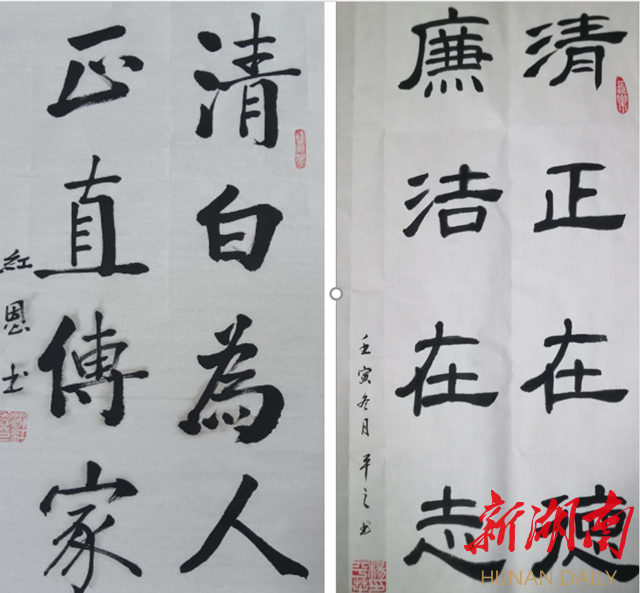 清白為人
正直傳家
紅恩书
清正在德
廉洁在志
壬寅冬月 平之书
新湖南
HUNAN DAILY